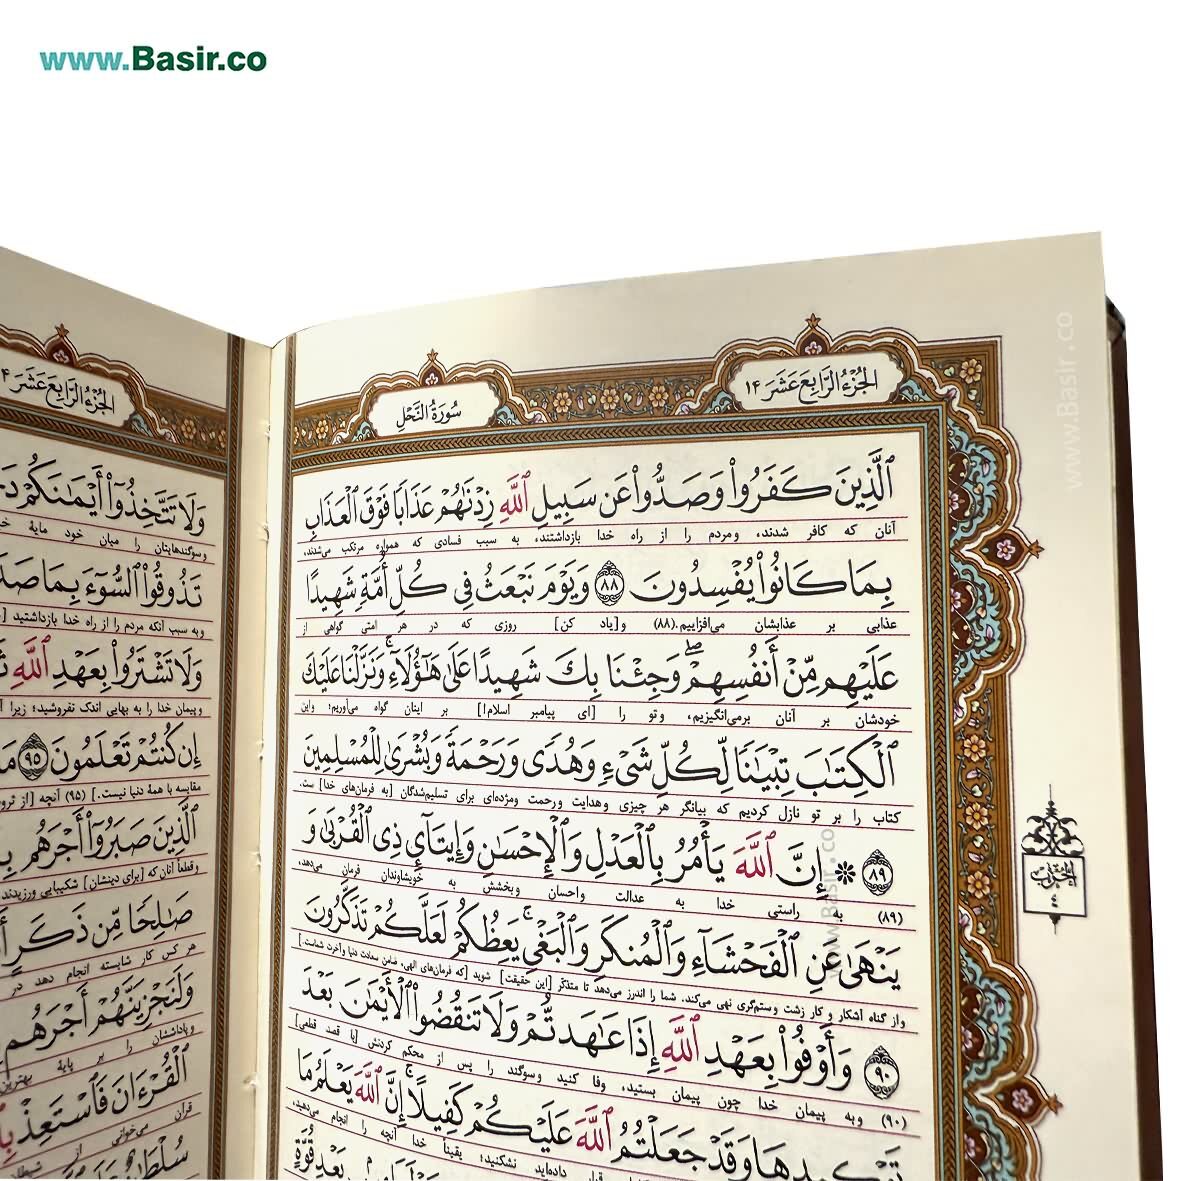 www.Basir.co
الجُزءُ الرَّابِعَ عَشَرَ ۱۴
سُورَةُ النَّحْلِ
ٱلَّذِينَ كَفَرُواْ وَصَدُّواْ عَن سَبِيلِ ٱللَّهِ زِدْنَٰهُمْ عَذَابًا فَوْقَ ٱلْعَذَابِ
آنان که کافر شدند، ومردم را از راه خدا بازداشتند، به سبب فسادی که همواره مرتکب می‌شدند،
بِمَا كَانُواْ يُفْسِدُونَ ٨٨ وَيَوْمَ نَبْعَثُ فِى كُلِّ أُمَّةٍ شَهِيدًا
عذابی بر عذابشان می‌افزاییم.(۸۸) و[یاد کن] روزی که در هر امتی گواهی از
عَلَيْهِم مِّنْ أَنفُسِهِمْۖ وَجِئْنَا بِكَ شَهِيدًا عَلَىٰ هَٰٓؤُلَآءِۚ وَنَزَّلْنَا عَلَيْكَ
خودشان بر آنان برمی‌انگیزیم، وتو را [ای پیامبر اسلام!] بر اینان گواه می‌آوریم؛ واین
ٱلْكِتَٰبَ تِبْيَٰنًا لِّكُلِّ شَىْءٍ وَهُدًى وَرَحْمَةً وَبُشْرَىٰ لِلْمُسْلِمِينَ
کتاب را بر تو نازل کردیم که بیانگر هر چیزی وهدایت ورحمت ومژده‌ای برای تسلیم‌شدگان [به فرمان‌های خدا] ست.
٨٩ ۞ إِنَّ ٱللَّهَ يَأْمُرُ بِٱلْعَدْلِ وَٱلْإِحْسَٰنِ وَإِيتَآىِٕ ذِى ٱلْقُرْبَىٰ وَ
(۸۹) به راستی خدا به عدالت واحسان وبخشش به خویشاوندان فرمان می‌دهد،
يَنْهَىٰ عَنِ ٱلْفَحْشَآءِ وَٱلْمُنكَرِ وَٱلْبَغْىِۚ يَعِظُكُمْ لَعَلَّكُمْ تَذَكَّرُونَ
واز گناه آشکار و کار زشت وستم‌گری نهی می‌کند. شما را اندرز می‌دهد تا متذکّر [این حقیقت] شوید [که فرمان‌های الهی، ضامن سعادت دنیا وآخرت شماست.]
٩٠ وَأَوْفُواْ بِعَهْدِ ٱللَّهِ إِذَا عَٰهَدتُّمْ وَلَا تَنقُضُواْ ٱلْأَيْمَٰنَ بَعْدَ
(۹۰) وبه پیمان خدا چون پیمان بستید، وفا کنید وسوگند را پس از محکم کردنش [با قصد قطعی]
تَوْكِيدِهَا وَقَدْ جَعَلْتُمُ ٱللَّهَ عَلَيْكُمْ كَفِيلًاۚ إِنَّ ٱللَّهَ يَعْلَمُ مَا
قرار داده‌اید نشکنید؛ یقیناً خدا آنچه را انجام می‌دهید،
بَعْدِ قُوَّةٍ
الجُزءُ الرَّابِعَ عَشَرَ ۱۴
وَلَا تَتَّخِذُوٓاْ أَيْمَٰنَكُمْ
وسوگندهایتان را میان خود مایهٔ
تَذُوقُواْ ٱلسُّوٓءَ بِمَا
وبه سبب آنکه مردم را از راه خدا بازداشتید
وَلَا تَشْتَرُواْ بِعَهْدِ ٱللَّهِ
وپیمان خدا را به بهایی اندک نفروشید؛ زیرا
إِن كُنتُمْ تَعْلَمُونَ ٩٥
مقایسه با همهٔ دنیا نیست.] (۹۵) آنچه [از
ٱلَّذِينَ صَبَرُوٓاْ أَجْرَهُم
وقطعاً آنان که [برای دینشان] شکیبایی ورزیدند
صَٰلِحًا مِّن ذَكَرٍ
هر کس کار شایسته انجام دهد در
وَلَنَجْزِيَنَّهُمْ أَجْرَهُم
وپاداششان را بر پایهٔ بهترین
ٱلْقُرْءَانَ فَٱسْتَعِذْ
قرآن می‌خوانی از
سُلْطَٰنٌ
الحزب
٤
www.Basir.co
www.Basir.co